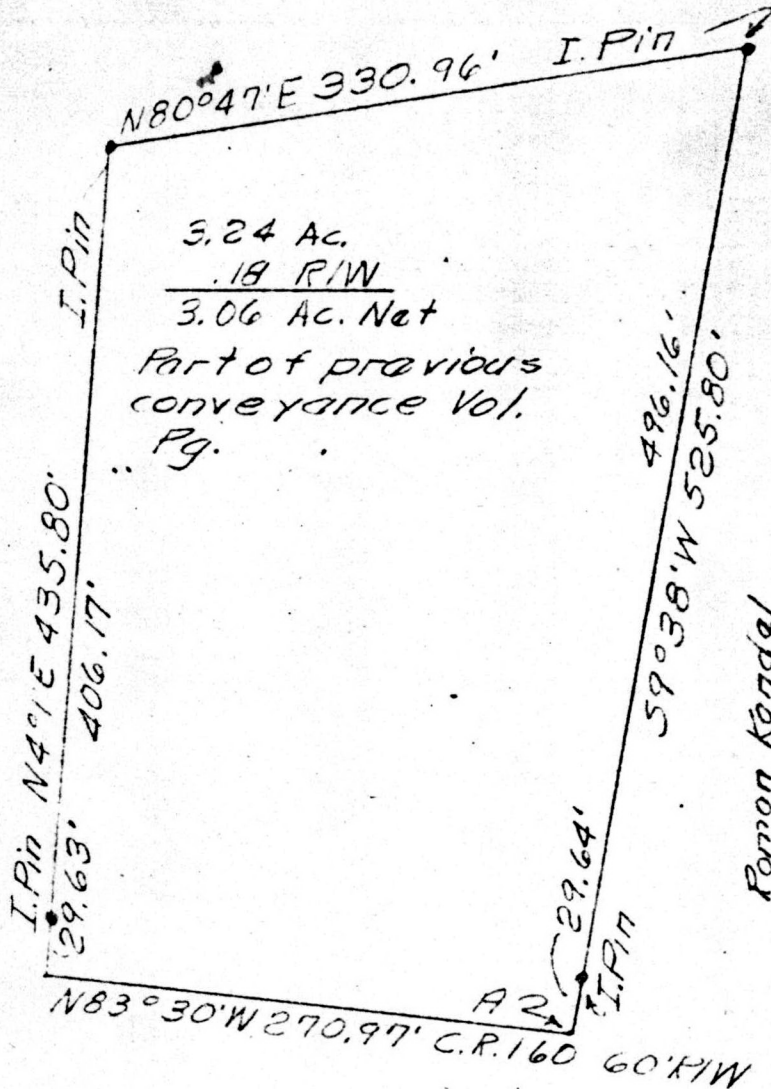 I. Pin
N80°47'E 330.96'
I. Pin
3.24 Ac.
.18 R/W
3.06 Ac. Net
Part of previous
conveyance Vol.
Pg.
N4°1'E 435.80'
406.17'
496.16'
S9°38'W 525.80'
I. Pin
29.63'
29.64'
I. Pin
A2
N83°30'W 270.97' C.R.160 60'R/W